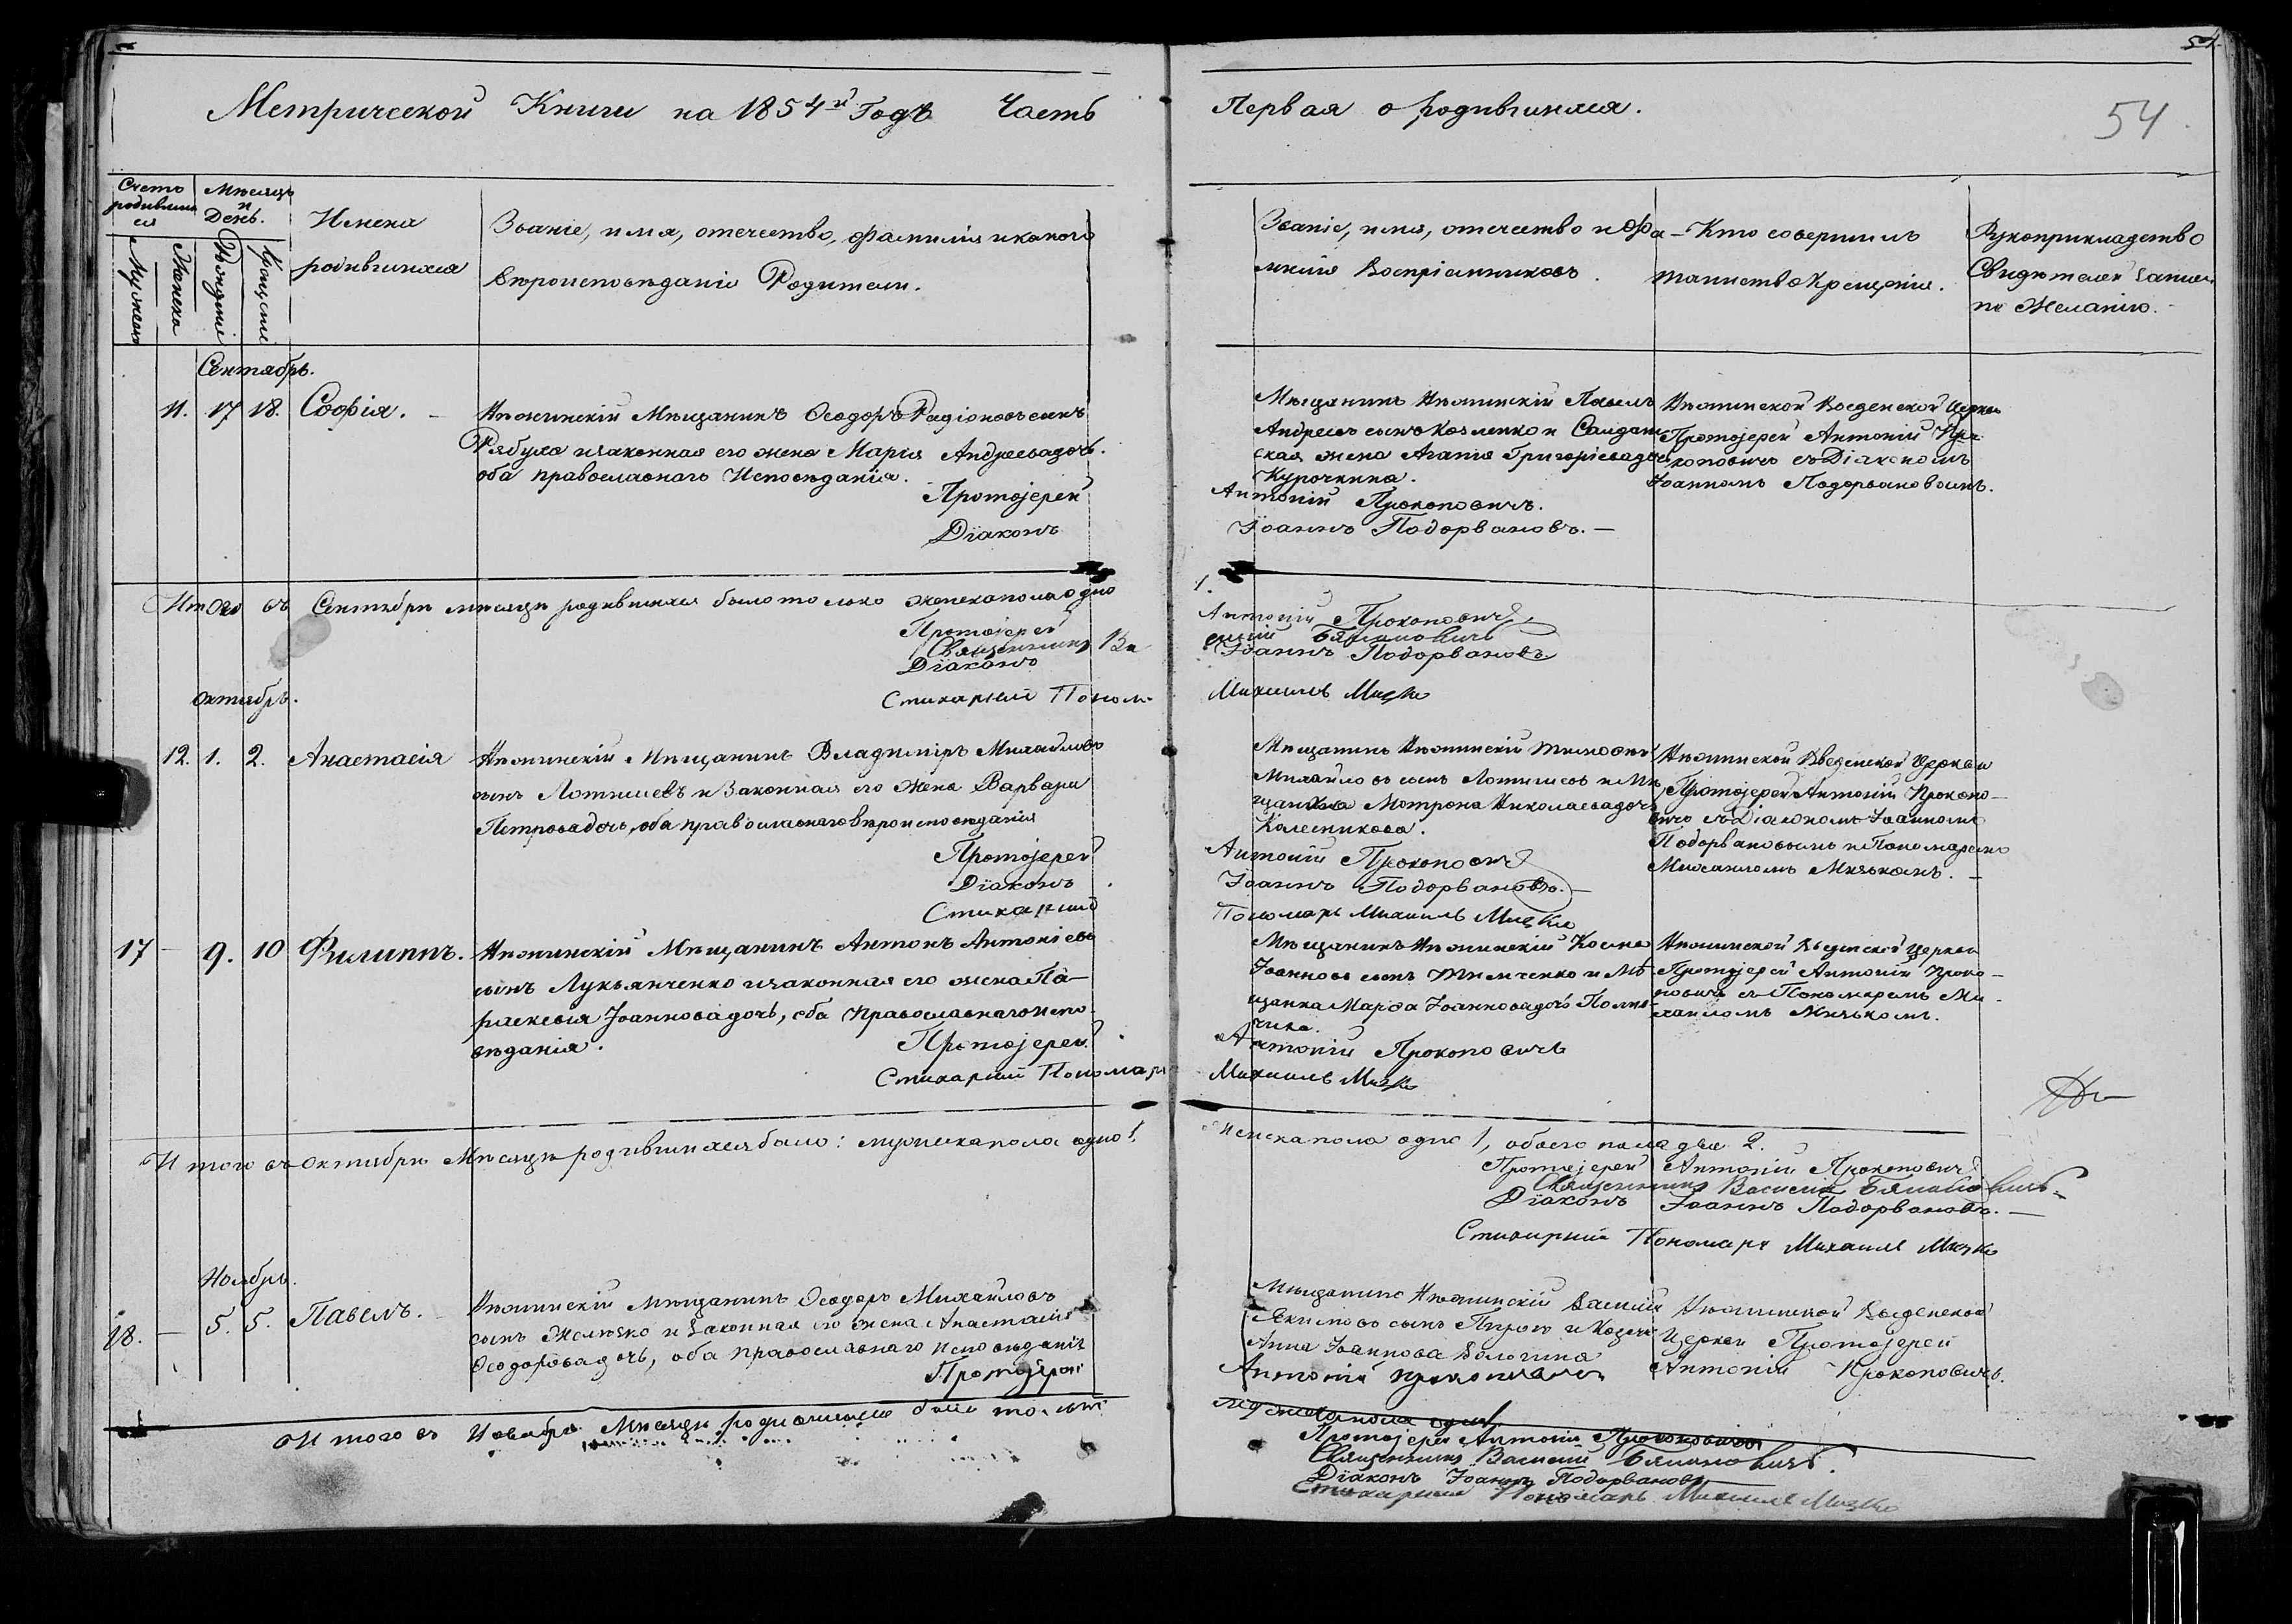 54.
Метрической Книги на 1854й Годъ Часть
Первая о родившихся.
54
Счетъ родившихся
Мѣсяцъ и День.
Мужеска
Женска
Рожденіе
Крещеніе
Имена
родившихся
Званіе, имя, отечество, фамилія и какого
вѣроисповѣданія Родители.
Званіе, имя, отечество и Фа-
милія Воспріемниковъ.
Кто совершилъ
таинство Крещенія.
Рукоприкладство
Свидѣтелей записи
по Желанію.
Сентябрь.
11. 17 18. Софія. –
Нѣжинскій Мѣщанинъ Ѳеодоръ Радіоновъ сынъ
Рябуха и законная его жена Марія Андреевадочь.
оба православнаго Исповѣданія.
Протоіерей
Діаконъ
Мѣщанинъ Нѣжинскій Павелъ
Андреевъ сынъ Козленко и Салдат
ская жена Агапія Григоріевадоч
Курочкина.
Антоній Прокоповичъ.
Іоаннъ Подорвановъ. –
Нѣжинской Введенской Церкви
Протоіерей Антоній Про
коповичъ съ Діакономъ
Іоанномъ Подорвановымъ.
Итого въ Сентябрѣ мѣсяцѣ родившихся было только женска пола одно
1.
Протоіерей
Священникъ Ва
Діаконъ
Стихарный Поном
Антоній Прокоповичъ
силій
Іоаннъ Подорвановъ
Михаилъ
Октябрь.
12. 1. 2. Анастасія
Нѣжинскій Мѣщанинъ Владиміръ Михайловъ
сынъ Лотышевъ и Законная его Жена Варвара
Петровадочь, оба православнаго вѣроисповѣданія
Протоіерей
Діаконъ
Стихарный
Мѣщанинъ Нѣжинскій Тимоѳей
Михайловъ сынъ Лотышевъ и Мѣ
щанка Мотрона Николаевадоч
Колесникова.
Антоній Прокоповичъ
Іоаннъ Подорвановъ. –
Пономарь Михаилъ
Нѣжинской Введенской Церкви
Протоіерей Антоній Прокопо-
вичъ съ Діакономъ Іоанномъ
Подорвановымъ и Пономаремъ
Михаиломъ
17 – 9. 10 Филиппъ.
Нѣжинскій Мѣщанинъ Антонъ Антоніевъ
сынъ Лукьянченко и законная его жена Па-
раскевія Іоанновадочь, оба Православнаго испо-
вѣданія.
Протоіерей
Стихарный Пономарь
Мѣщанинъ Нѣжинскій Косма
Іоанновъ сынъ Тимченко и Мѣ-
щанка Марѳа Іоанновадочь
Антоній Прокоповичъ
Михаилъ
Нѣжинской Введенской Церкви
Протоіерей Антоній Проко-
повичъ съ Пономаремъ Ми-
хаиломъ
Итого въ Октябрѣ Мѣсяцѣ родившихся было: мужеска пола одно 1.
женска пола одно 1, обоего пола два 2.
Протоіерей Антоній Прокоповичъ
Священникъ Василій
Діаконъ Іоаннъ Подорвановъ. –
Стихарный Пономарь Михаилъ
Ноябрь.
18. – 5. 5. Павелъ.
Нѣжинскій мѣщанинъ Ѳеодоръ Михайловъ
сынъ и законная его жена Анастасія
Ѳеодоровадочь, оба православнаго исповѣданія
Протоіерей
Мѣщанинъ Нѣжинскій Василій
Екимовъ сынъ
Анна Іоаннова
Антоній Прокоповичъ
Нѣжинской Введенской
Церкви Протоіерей
Антоній Прокоповичъ.
Итого въ Ноябрѣ Мѣсяцѣ родившихся было только
Протоіерей Антоній Прокоповичъ
Священникъ Василій
Діаконъ Іоаннъ Подорвановъ
Стихарный Пономарь Михаилъ